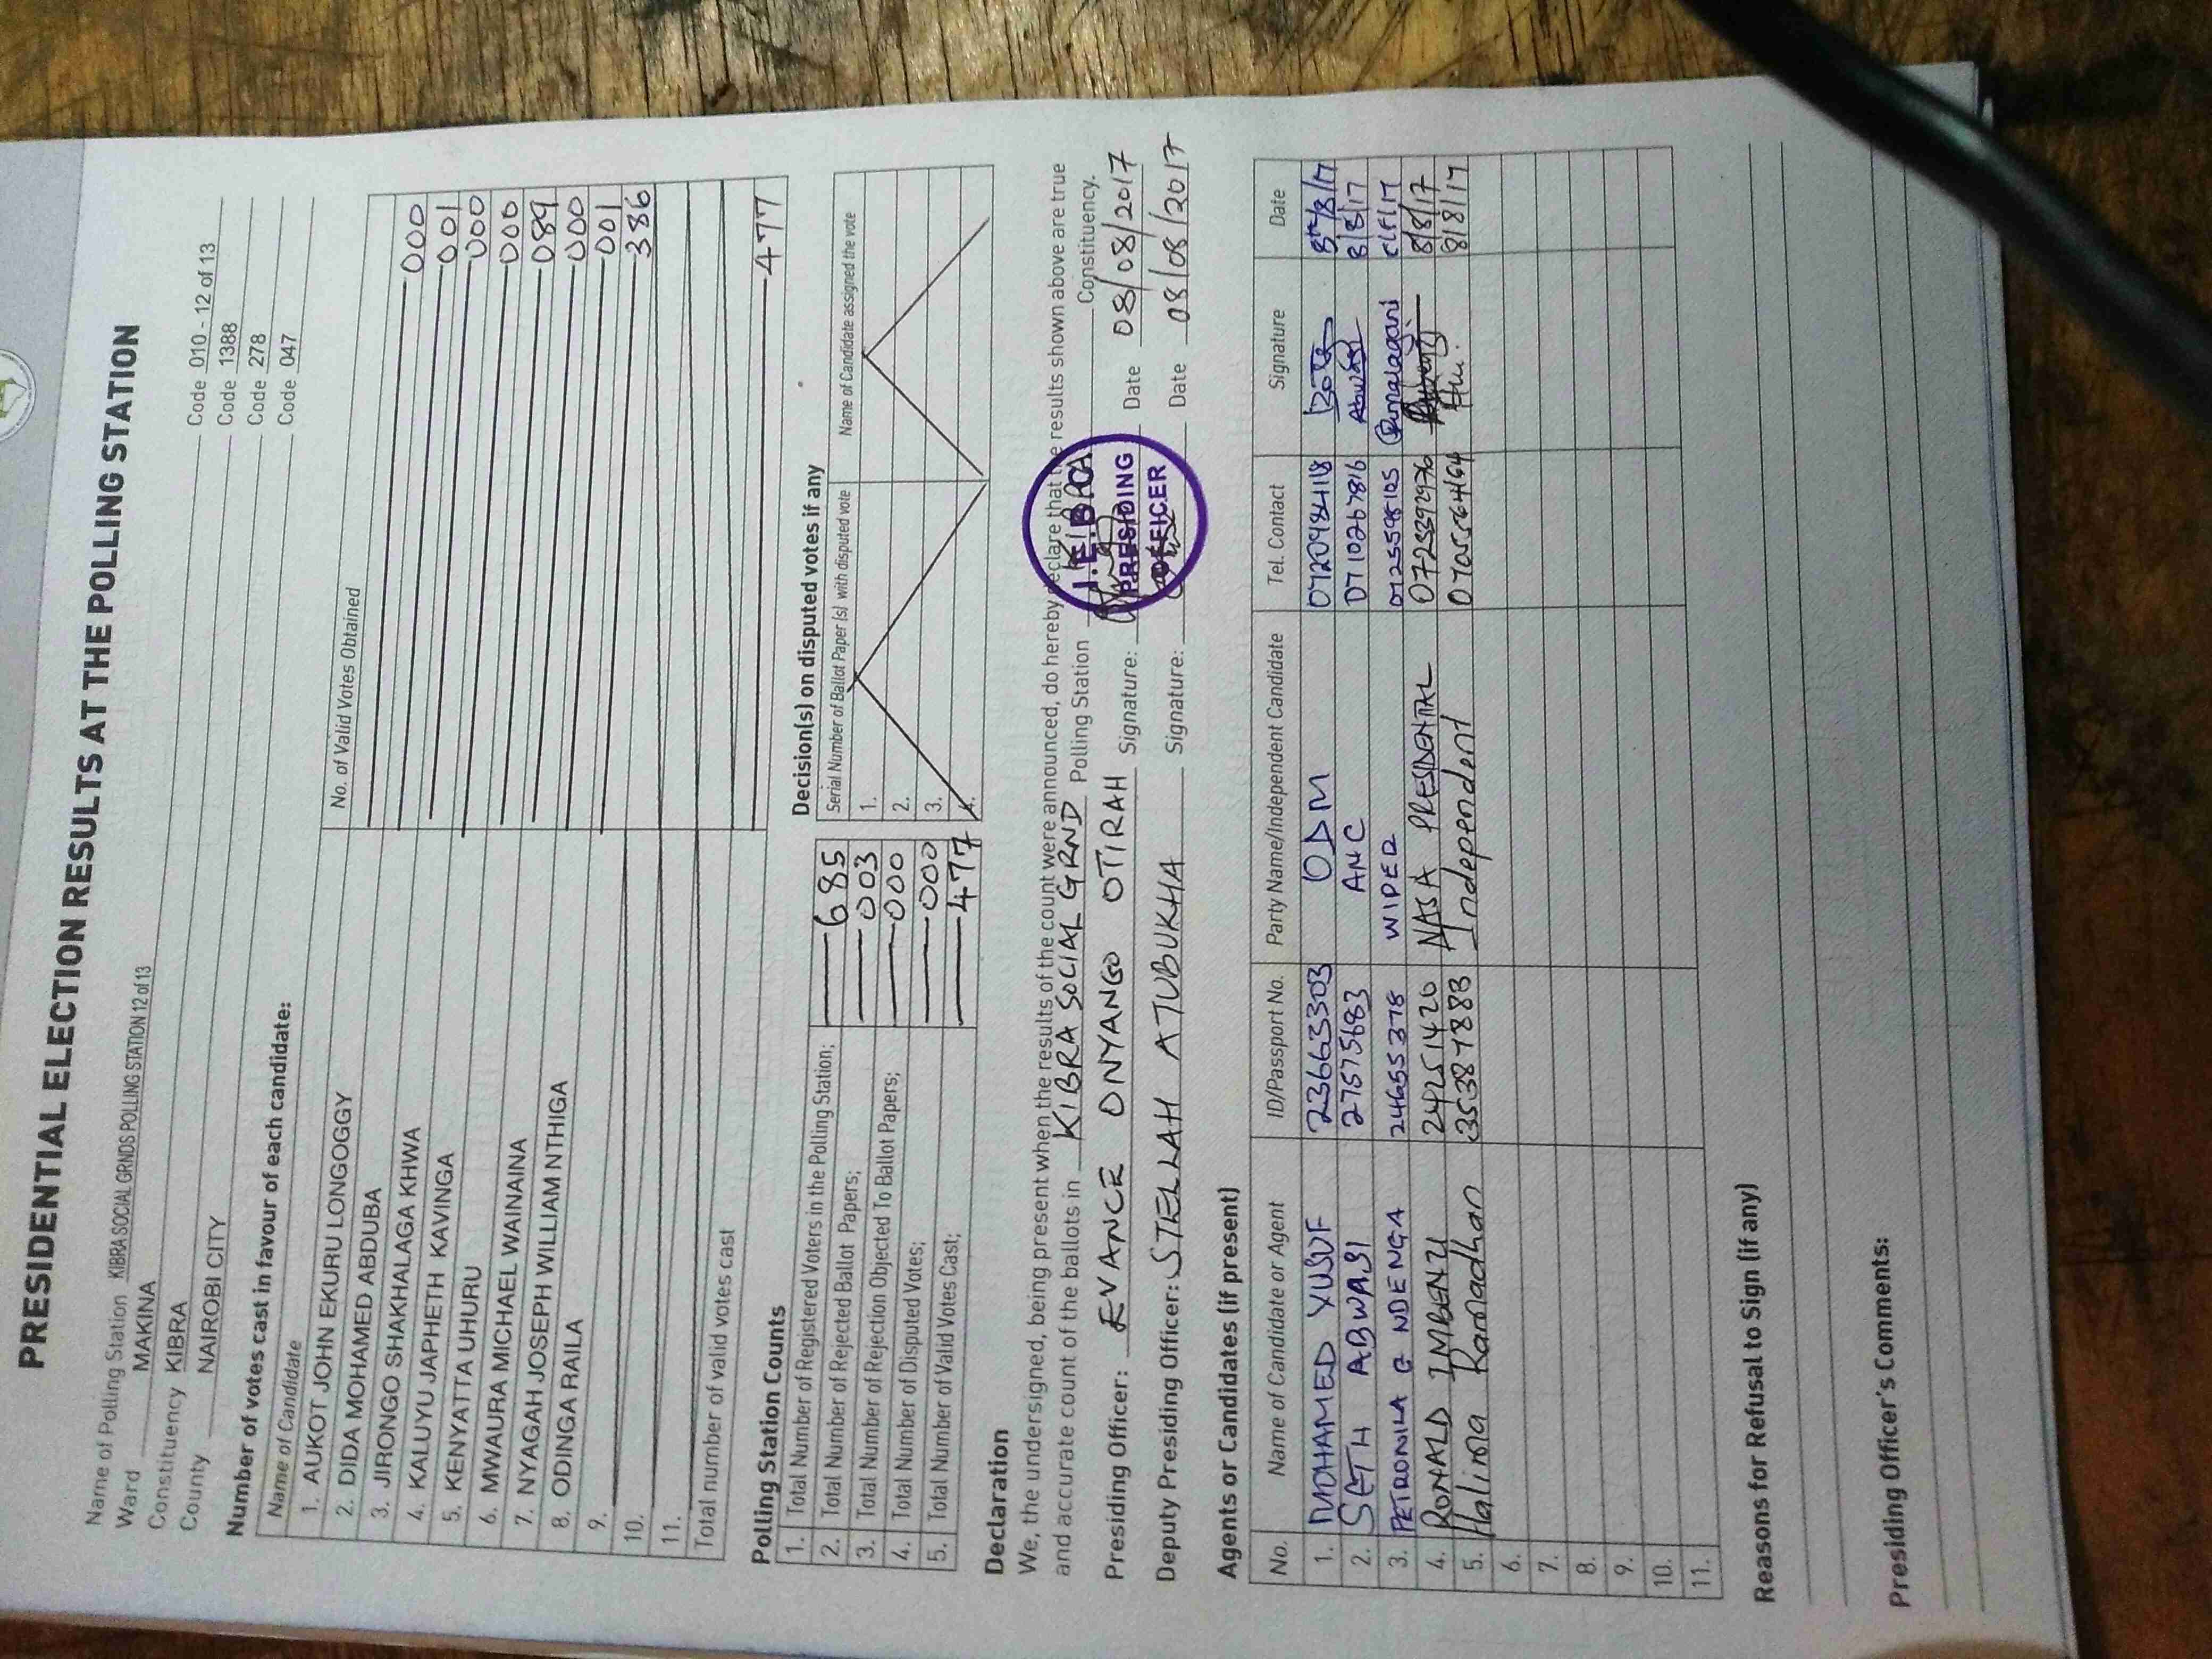 PRESIDENTIAL ELECTION RESULTS AT THE POLLING STATION
Name of Polling Station KIBRA SOCIAL GRNDS POLLING STATION 12 of 13 Code 010 - 12 of 13
Ward MAKINA Code 1388
Constituency KIBRA Code 278
County NAIROBI CITY Code 047
Number of votes cast in favour of each candidate:
Name of Candidate No. of Valid Votes Obtained
1. AUKOT JOHN EKURU LONGOGGY 000
2. DIDA MOHAMED ABDUBA 001
3. JIRONGO SHAKHALAGA KHWA 000
4. KALUYU JAPHETH KAVINGA 000
5. KENYATTA UHURU 089
6. MWAURA MICHAEL WAINAINA 000
7. NYAGAH JOSEPH WILLIAM NTHIGA 001
8. ODINGA RAILA 386
9.
10.
11.
Total number of valid votes cast 477
Polling Station Counts
1. Total Number of Registered Voters in the Polling Station; 685
2. Total Number of Rejected Ballot Papers; 003
3. Total Number of Rejection Objected To Ballot Papers; 000
4. Total Number of Disputed Votes; 000
5. Total Number of Valid Votes Cast; 477
Decision(s) on disputed votes if any
Serial Number of Ballot Paper (s) with disputed vote Name of Candidate assigned the vote
1.
2.
3.
4.
Declaration
We, the undersigned, being present when the results of the count were announced, do hereby declare that the results shown above are true
and accurate count of the ballots in KIBRA SOCIAL GRND Polling Station KIBRA Constituency.
Presiding Officer: EVANCE ONYANGO OTIRAH Signature: Date 08/08/2017
Deputy Presiding Officer: STELLAH ATUBUKHA Signature: Date 08/08/2017
I.E.B.C
PRESIDING
OFFICER
Agents or Candidates (if present)
No. Name of Candidate or Agent ID/Passport No. Party Name/Independent Candidate Tel. Contact Signature Date
1. MOHAMED YUSUF 23663303 ODM 0720484118
2. SETH ABWASI 27575683 ANC 0710267816 8/8/17
3. PETRONILA A NDENGA 24655378 WIPER 0725598105
4. RONALD IMBENZI 24251420 NASA PRESIDENTIAL 0725392976 8/8/17
5. Halima Ramadhan 35387883 Independent 0705564464 8/8/17
6.
7.
8.
9.
10.
11.
Reasons for Refusal to Sign (if any)
Presiding Officer's Comments: